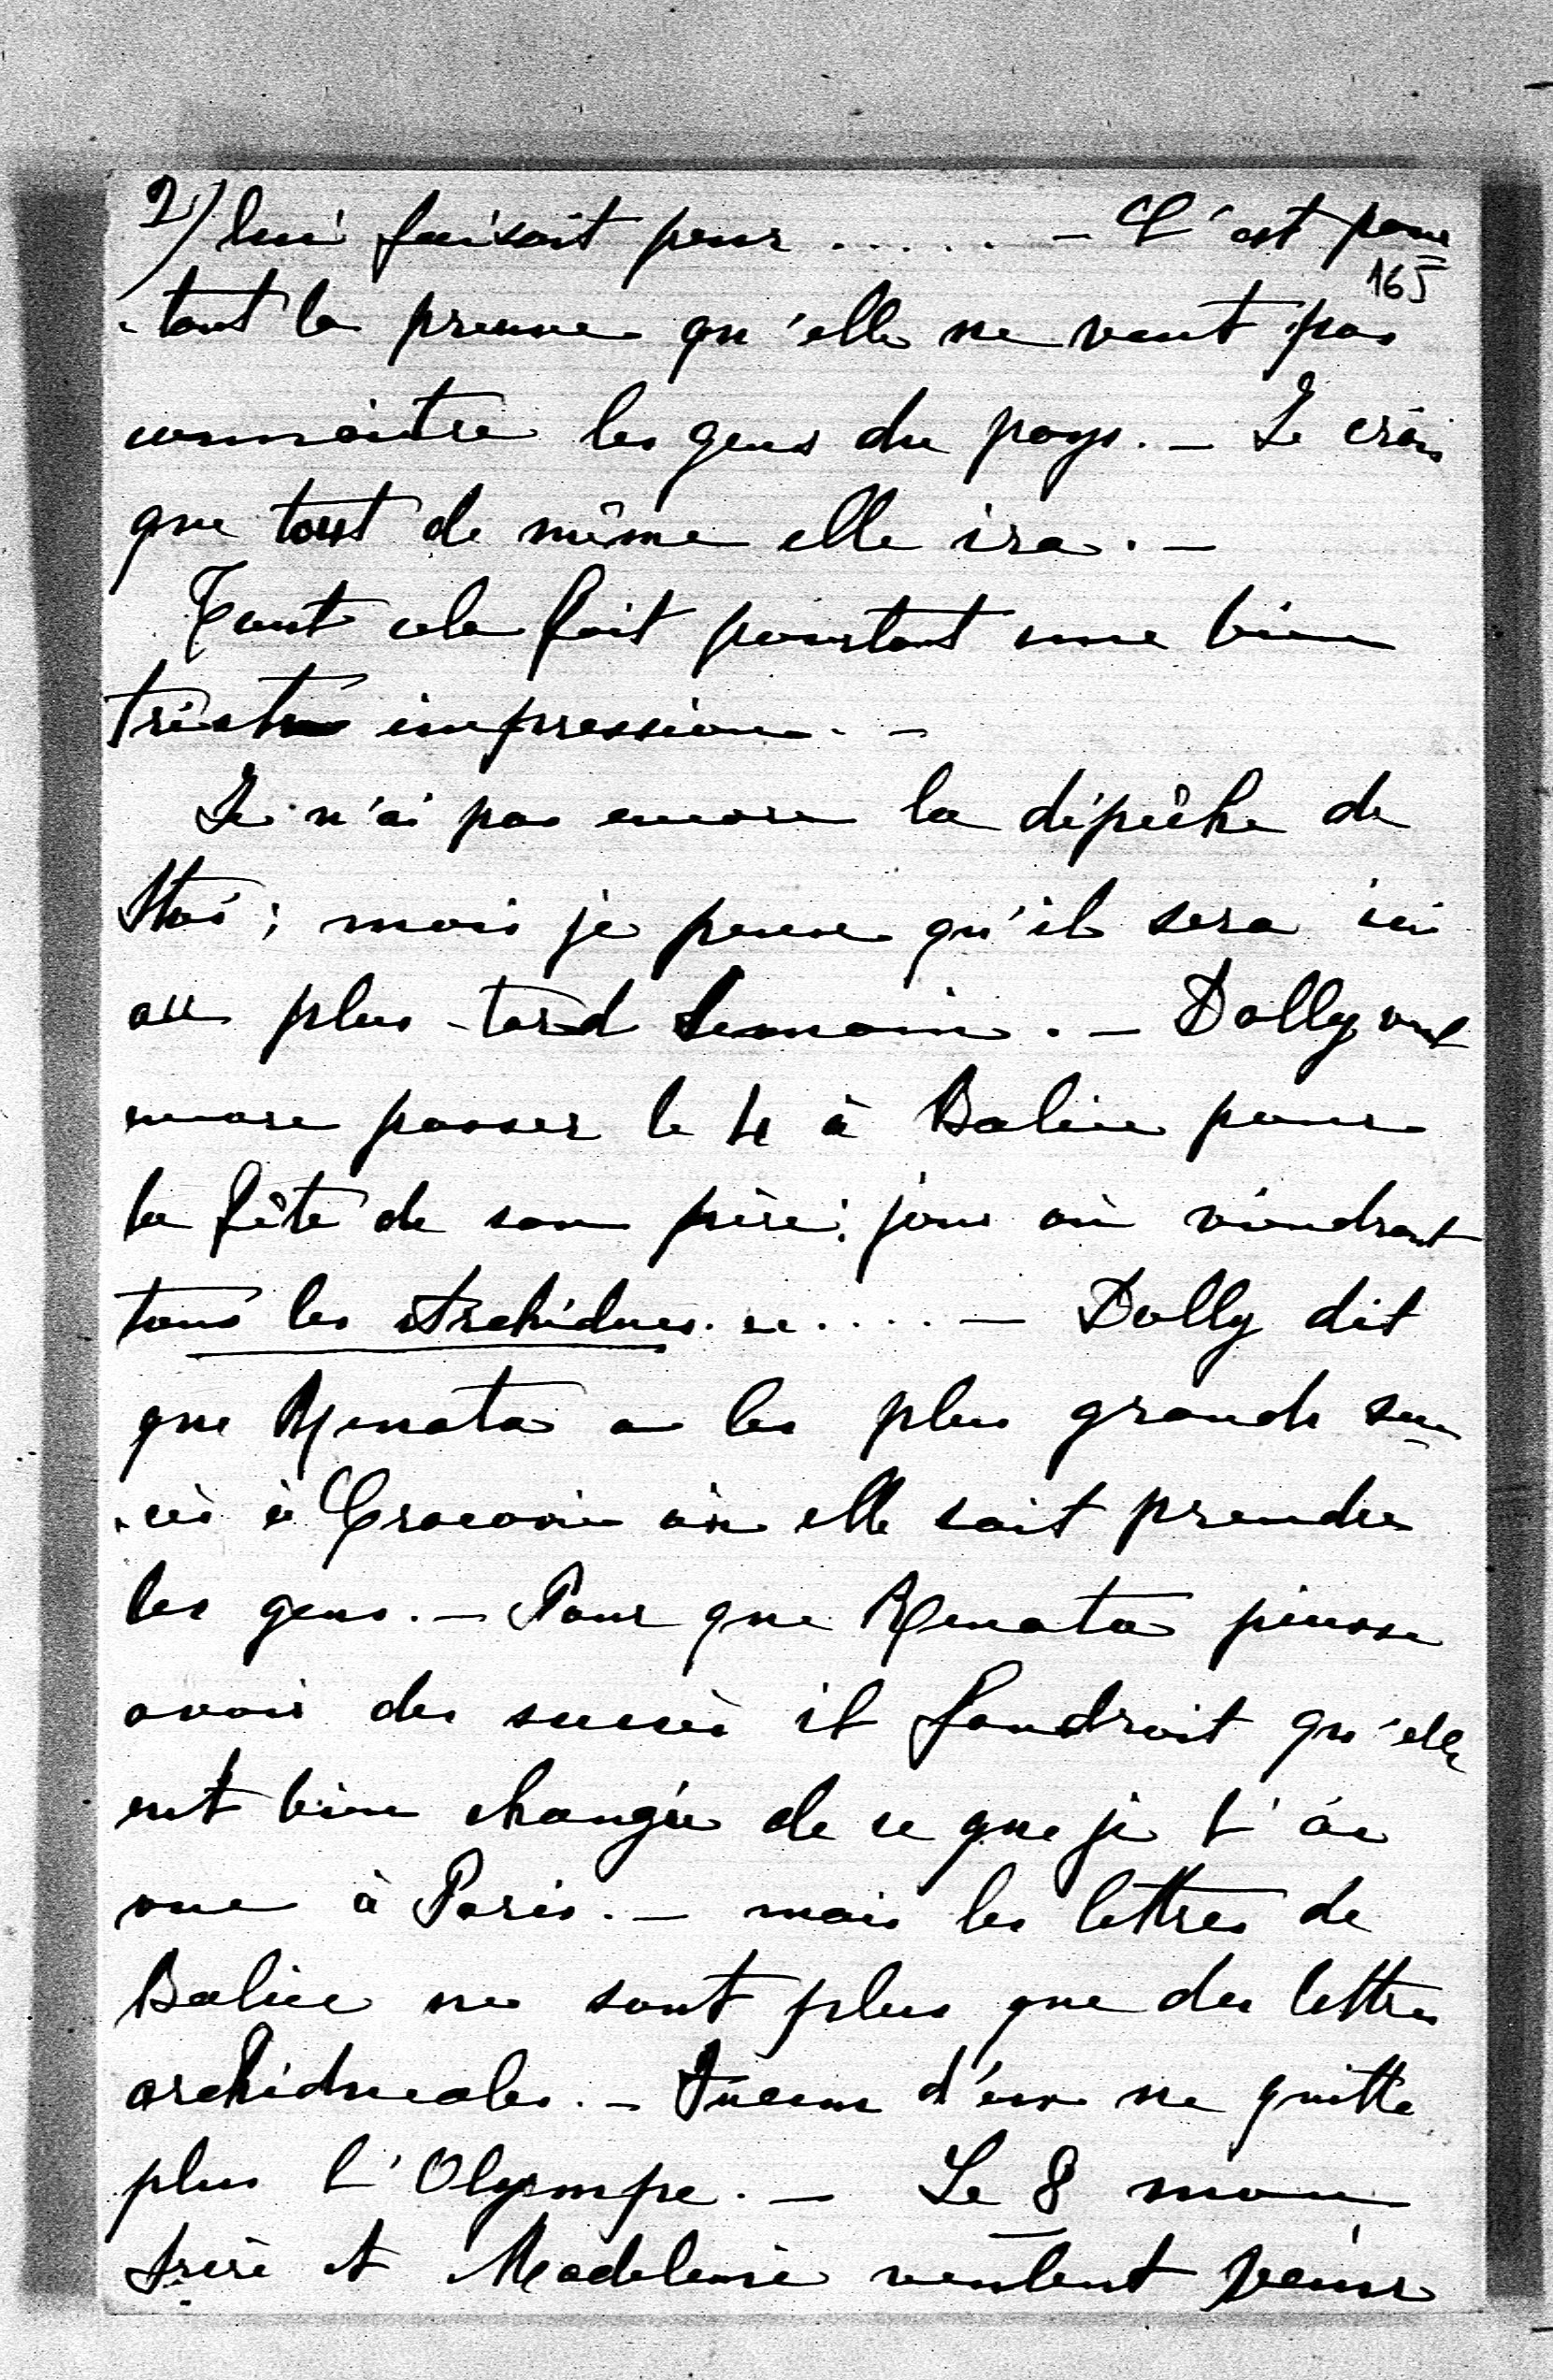 2) lui faisait peur ..... – C'est pour
165
-tant la preuve qu'elle ne veut pas
connaître les gens du pays. – Je crois
que tout de même elle ira. –
Tout cela fait pourtant une bien
triste impression. –
Je n'ai pas encore la dépêche de
Staś; mais je pense qu'il sera ici
au plus tard demain. – Dolly veut
encore passer le 4 à Balice pour
la fête de son père: jour où viendront
tous les Archiducs. .... – Dolly dit
que Renata a les plus grands suc
-cès à Cracovie où elle sait prendre
les gens. – Pour que Renata puisse
avoir des succès il faudrait qu'elle
eut bien changée de ce que je l'ai
vue à Paris. – mais les lettres de
Balice ne sont plus que des lettres
archiducales. – Aucun d'eux ne quitte
plus l'Olympe. – Le 8 mon
frère et Madeleine veulent venir